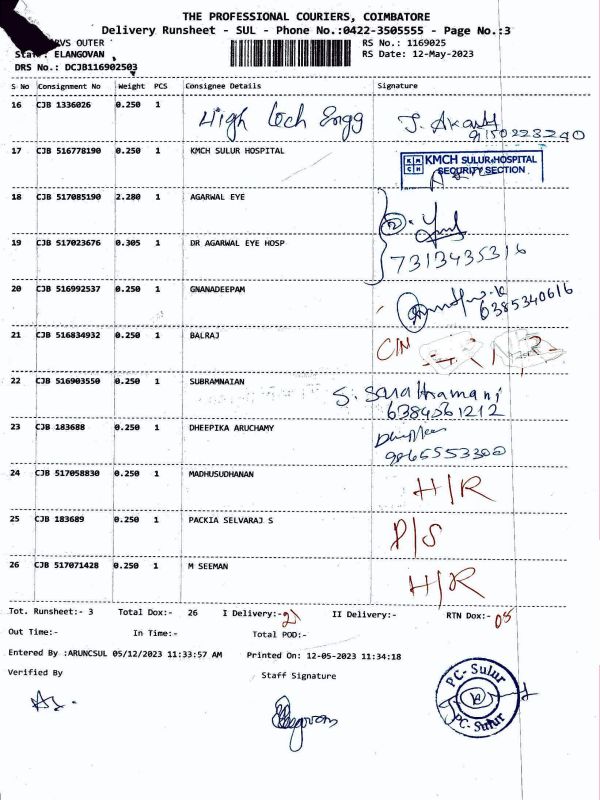 THE PROFESSIONAL COURIERS, COIMBATORE
Delivery Runsheet - SUL - Phone No.:0422-3505555 - Page No.:3
RVS OUTER RS No.: 1169025
Staff: ELANGOVAN RS Date: 12-May-2023
DRS No.: DCJB116902503
S No Consignment No Weight PCS Consignee Details Signature
16 CJB 1336026 0.250 1 High Tech Engg J. Akash
9150223240
17 CJB 516778190 0.250 1 KMCH SULUR HOSPITAL KMCH SULUR HOSPITAL
SECURITY SECTION
18 CJB 517085190 2.280 1 AGARWAL EYE
19 CJB 517023676 0.305 1 DR AGARWAL EYE HOSP 7313435316
20 CJB 516992537 0.250 1 GNANADEEPAM 6385340616
21 CJB 516834932 0.250 1 BALRAJ
22 CJB 516903550 0.250 1 SUBRAMNAIAN S. Sarathamani
6384561212
23 CJB 183688 0.250 1 DHEEPIKA ARUCHAMY
9865553300
24 CJB 517058830 0.250 1 MADHUSUDHANAN H/R
25 CJB 183689 0.250 1 PACKIA SELVARAJ S P/S
26 CJB 517071428 0.250 1 M SEEMAN H/R
Tot. Runsheet:- 3 Total Dox:- 26 I Delivery:-21 II Delivery:- RTN Dox:-05
Out Time:- In Time:- Total POD:-
Entered By :ARUNCSUL 05/12/2023 11:33:57 AM Printed On: 12-05-2023 11:34:18
Verified By Staff Signature
PC-Sulur
Elangovan
PC-Sulur